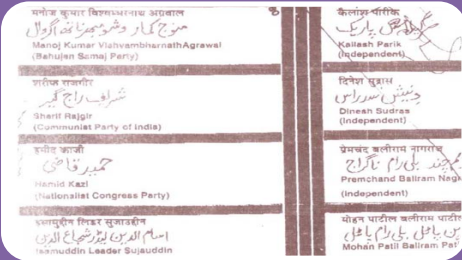 मनोज कुमार विश्वम्भरनाथ अग्रवाल
منوج کمار وشومبھرناتھ اگروال
Manoj Kumar VishvambharnathAgrawal
(Bahujan Samaj Party)
शरीफ राजगीर
شریف راج گیر
Sharif Rajgir
(Communist Party of India)
हमीद काजी
حمید قاضی
Hamid Kazi
(Nationalist Congress Party)
इसामुद्दीन लिडर सुजाउद्दीन
اسام الدین لیڈر شجاع الدین
Isamuddin Leader Sujauddin
कैलाश पारीक
پاریک
Kailash Parik
(Independent)
दिनेश सुद्रास
دنیش سدراس
Dinesh Sudras
(Independent)
प्रेमचंद बलीराम
چند بلی رام ناگراج
Premchand Baliram
(Independent)
मोहन पाटील बलीराम
پاٹل بلی رام پاٹل
Mohan Patil Baliram